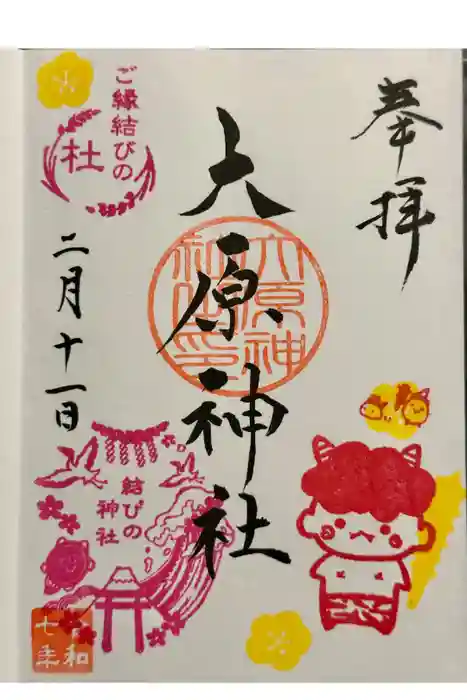 奉拝
大原神社
大原神
社之印
ご縁結びの
杜
二月十一日
結びの
神社
令和
七年